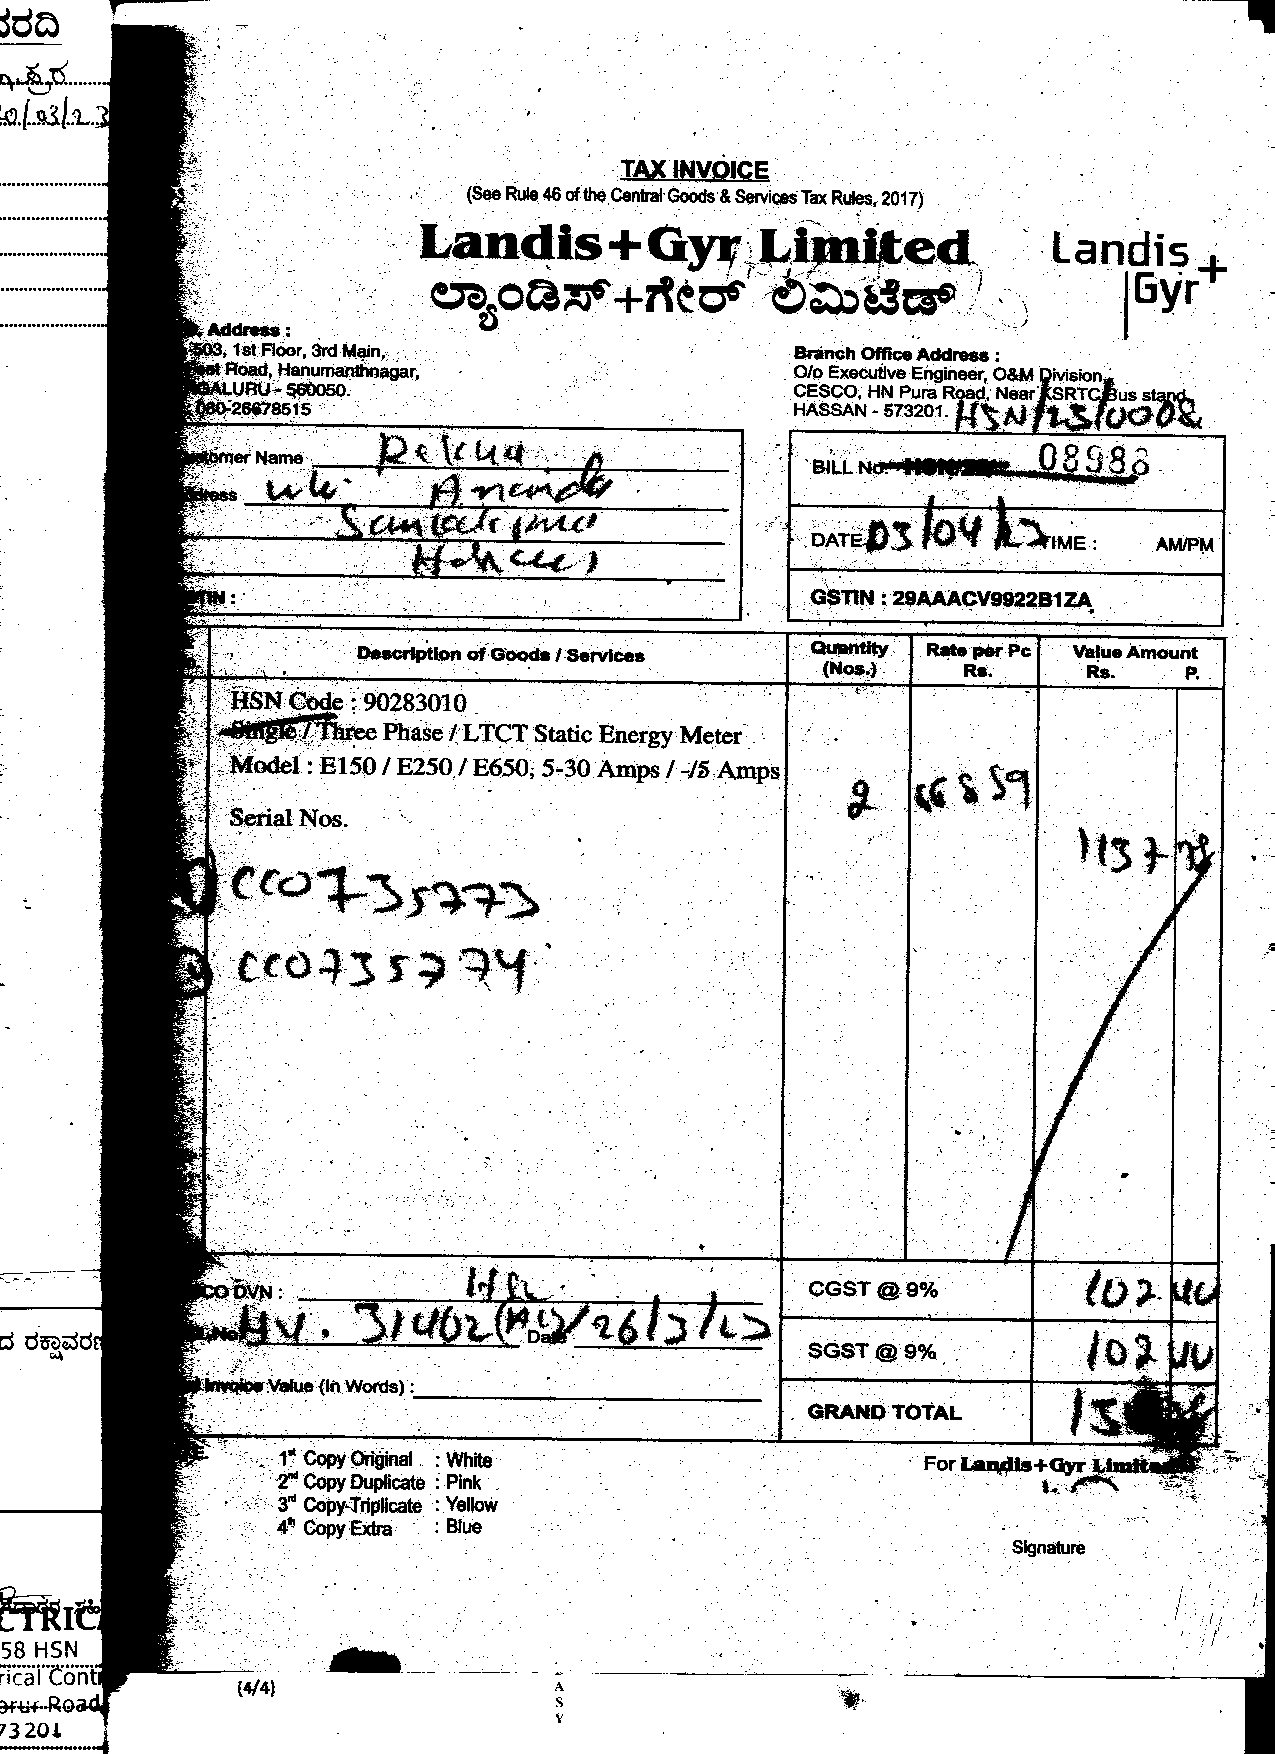 20/03/23
TAX INVOICE
(See Rule 46 of the Central Goods & Services Tax Rules, 2017)
Landis+Gyr Limited
ಲ್ಯಾಂಡಿಸ್+ಗೇರ್ ಲಿಮಿಟೆಡ್
Landis
Gyr+
Address :
503, 1st Floor, 3rd Main,
Road, Hanumanthnagar,
GALURU - 560050.
080-26678515
Branch Office Address :
O/o Executive Engineer, O&M Division,
CESCO, HN Pura Road, Near KSRTC Bus stand,
HASSAN - 573201. HSN/23/0008
Customer Name Rekha
Address w/o Ananda
BILL No. 08988
DATE 03/04/23 TIME : AM/PM
GSTIN : 29AAACV9922B1ZA
TIN :
Description of Goods / Services
Quantity (Nos.)
Rate per Pc Rs.
Value Amount Rs. P.
HSN Code : 90283010
Single / Three Phase / LTCT Static Energy Meter
Model : E150 / E250 / E650, 5-30 Amps / -/5 Amps
2
Serial Nos.
1137
CC0735773
CC0735774
CO DVN :
CGST @ 9% 102
No Date 26/3/23
SGST @ 9% 102
Invoice Value (In Words) :
GRAND TOTAL
1st Copy Original : White
2nd Copy Duplicate : Pink
3rd Copy Triplicate : Yellow
4th Copy Extra : Blue
For Landis+Gyr Limited
Signature
58 HSN
73201
(4/4)
A
S
Y